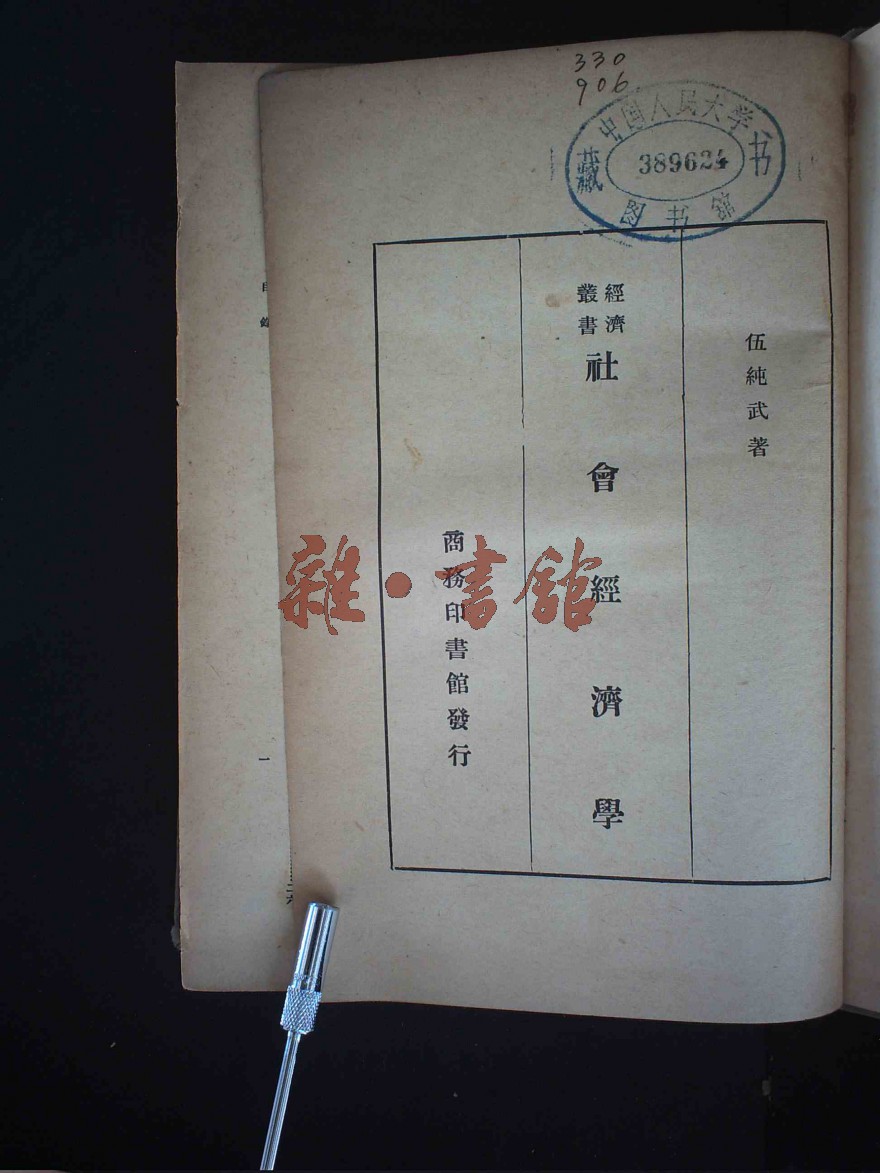 330
906
中国人民大学
藏 389624 书
图书馆
伍純武著
經濟
叢書
社會經濟學
商務印書館發行
雜·書館
一